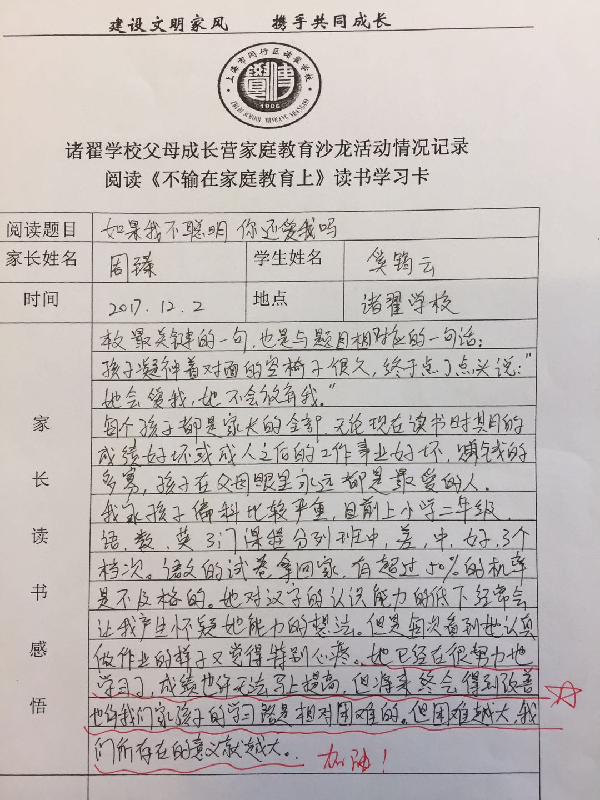 建设文明家风 携手共同成长
上海市闵行区诸翟学校
1906
诸翟学校父母成长营家庭教育沙龙活动情况记录
阅读《不输在家庭教育上》读书学习卡
阅读题目 如果我不聪明 你还爱我吗
家长姓名 周臻 学生姓名 奚筠云
时间 2017.12.2 地点 诸翟学校
家长读书感悟
本文最关键的一句,也是与题目相对应的一句话:
孩子凝神着对面的空椅子很久,终于点了点头说:"
她会爱我,她不会放弃我。"
每个孩子都是家长的全部,无论现在读书时其目的
成绩好坏或成人之后的工作事业好坏,赚钱的
多寡,孩子在父母眼里永远都是最爱的人。
我家孩子偏科比较严重,目前上小学二年级.
语、数、英3门课程分别班中,差,中,好,3个
档次。语文的试卷拿回家,有超过50%的机率
是不及格的。她对汉字的认识能力的低下经常会
让我产生怀疑她能力的想法。但是每次看到她认真
做作业的样子又觉得特别心疼。她已经在很努力地
学习了,成绩也许无法马上提高,但将来终会得到改善
也许我们家孩子的学习路是相对困难的。但困难越大,我
们所存在的意义就越大。
加油!